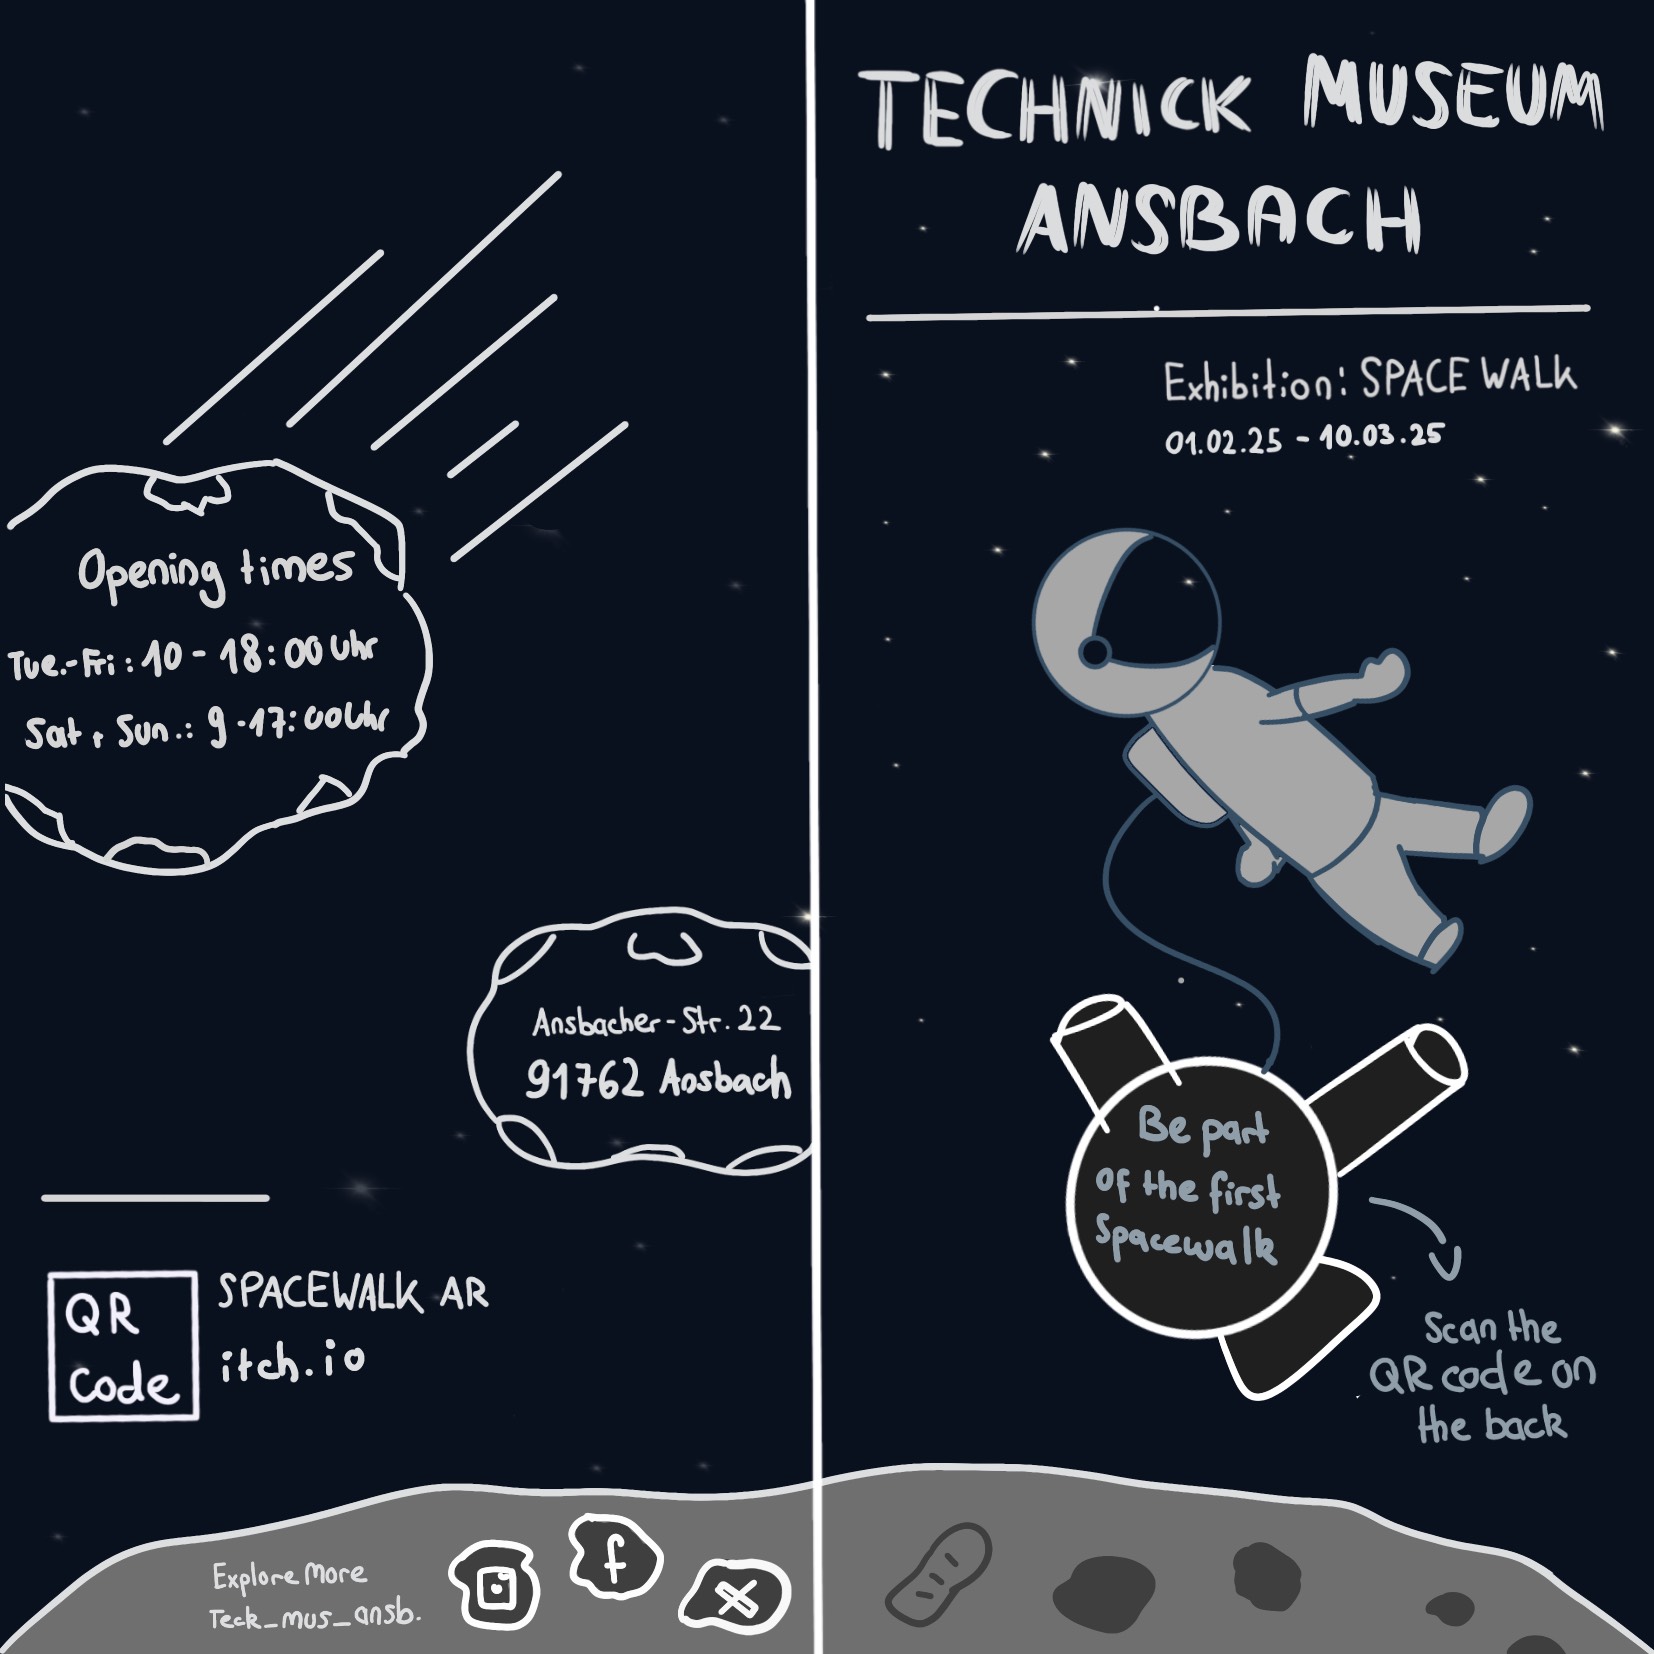 Opening times
Tue.-Fri: 10-18:00 Uhr
Sat + Sun.: 9-17:00 Uhr
Ansbacher-Str. 22
91762 Ansbach
QR
Code
SPACEWALK AR
itch.io
Explore More
Teck_mus_ansb.
f
TECHNICK MUSEUM
ANSBACH
Exhibition: SPACE WALK
01.02.25 - 10.03.25
Be part
of the first
Spacewalk
Scan the
QR code on
the back